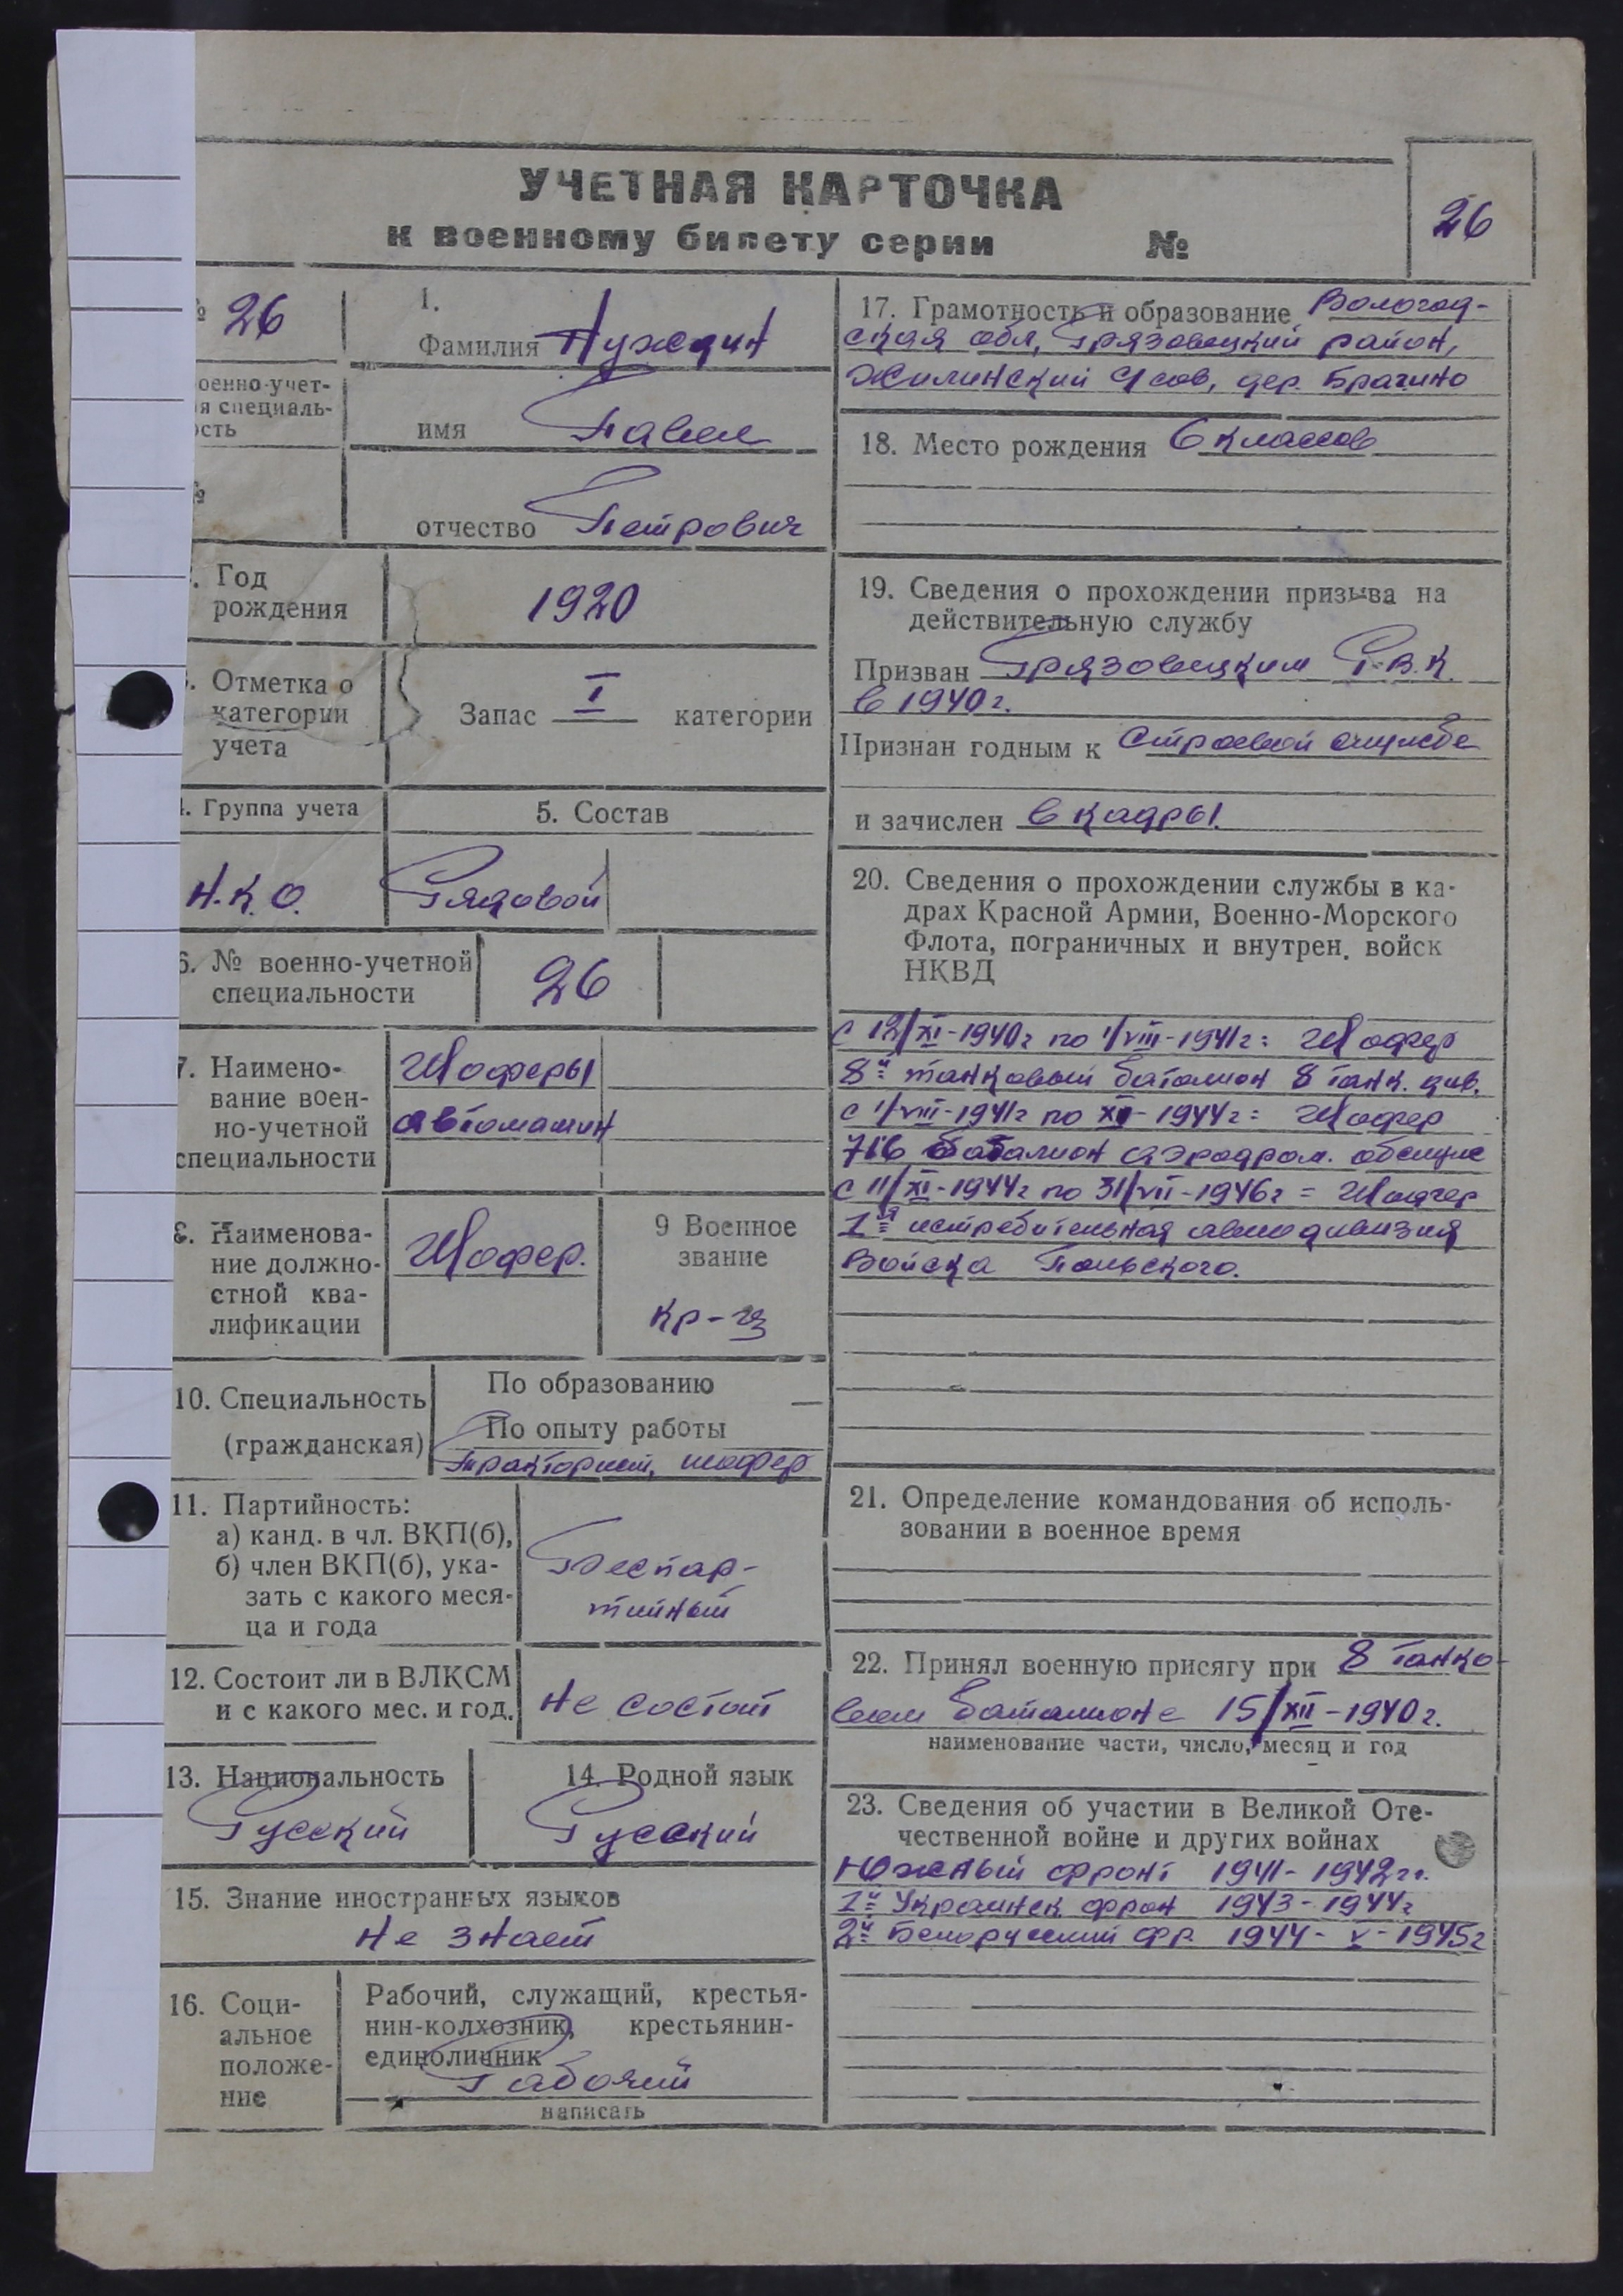 УЧЕТНАЯ КАРТОЧКА
к военному билету серии №
26
№ 26
оенно-учет-
я специаль-
ость
№
1.
Фамилия Нуждин
имя Павел
отчество Петрович
. Год
рождения
1920
. Отметка о
категории
учета
Запас I категории
. Группа учета
5. Состав
Н.К.О.
Рядовой
6. № военно-учетной
специальности
26
7. Наимено-
вание воен-
но-учетной
специальности
Шоферы
автомашин
8. Наименова-
ние должно-
стной ква-
лификации
Шофер.
9 Военное
звание
кр-ц
10. Специальность
(гражданская)
По образованию —
По опыту работы
тракторист, шофер
11. Партийность:
а) канд. в чл. ВКП(б),
б) член ВКП(б), ука-
зать с какого меся-
ца и года
Беспар-
тийный
12. Состоит ли в ВЛКСМ
и с какого мес. и год.
не состоит
13. Национальность
Русский
14. Родной язык
Русский
15. Знание иностранных языков
не знает
16. Соци-
альное
положе-
ние
Рабочий, служащий, крестья-
нин-колхозник, крестьянин-
единоличник
Рабочий
написать
17. Грамотность и образование Вологод-
ская обл, Грязовецкий район,
Жилинский с/сов, дер. Брагино
18. Место рождения 6 классов
19. Сведения о прохождении призыва на
действительную службу
Призван Грязовецким Р.В.К.
в 1940 г.
Признан годным к строевой службе
и зачислен в кадры.
20. Сведения о прохождении службы в ка-
драх Красной Армии, Военно-Морского
Флота, пограничных и внутрен. войск
НКВД
с 12/XI-1940г по 1/VIII-1941г = Шофер
8й танковый батальон 8 танк. див.
с 1/VIII-1941г по XI-1944г = Шофер
716 батальон аэродром. обслуж
с 11/XI-1944г по 31/VII-1946г = Шофер
1я истребительная авиодивизия
Войска Польского.
21. Определение командования об исполь-
зовании в военное время
22. Принял военную присягу при 8 танко-
вом батальоне 15/XII-1940г.
наименование части, число, месяц и год
23. Сведения об участии в Великой Оте-
чественной войне и других войнах
Южный фронт 1941-1942гг.
1й Украинск фрон 1943-1944г
2й Белорусский фр. 1944-V-1945г